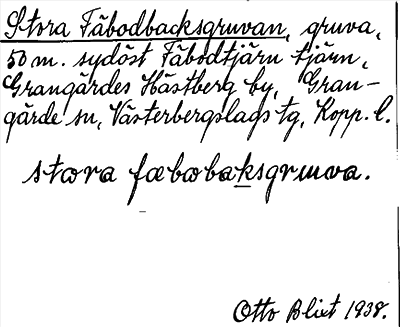 Stora Fäbodbacksgruvan, gruva,
50 m. sydöst Fäbodtjärn tjärn,
Grangärdes Hästberg by, Gran-
gärde sn, Västerbergslags tg, Kopp. l.
stora fæbobaksgruva.
Otto Blixt 1938.